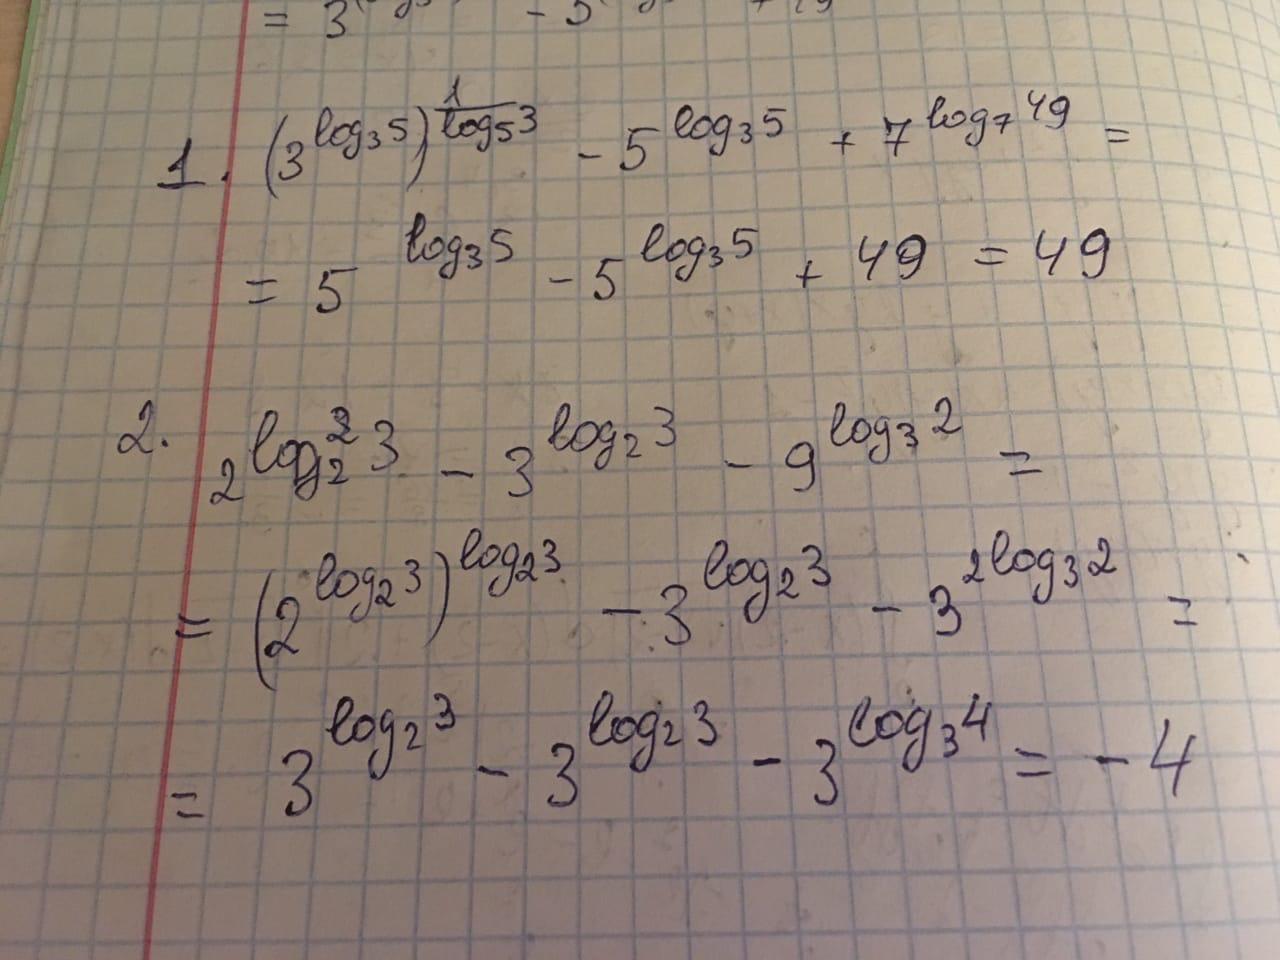 = 3
1. (3^{log_3 5})^{\frac{1}{log_5 3}} - 5^{log_3 5} + 7^{log_7 49} =
= 5^{log_3 5} - 5^{log_3 5} + 49 = 49
2. 2^{log_2^2 3} - 3^{log_2 3} - 9^{log_3 2} =
= (2^{log_2 3})^{log_2 3} - 3^{log_2 3} - 3^{2log_3 2} =
= 3^{log_2 3} - 3^{log_2 3} - 3^{log_3 4} = -4